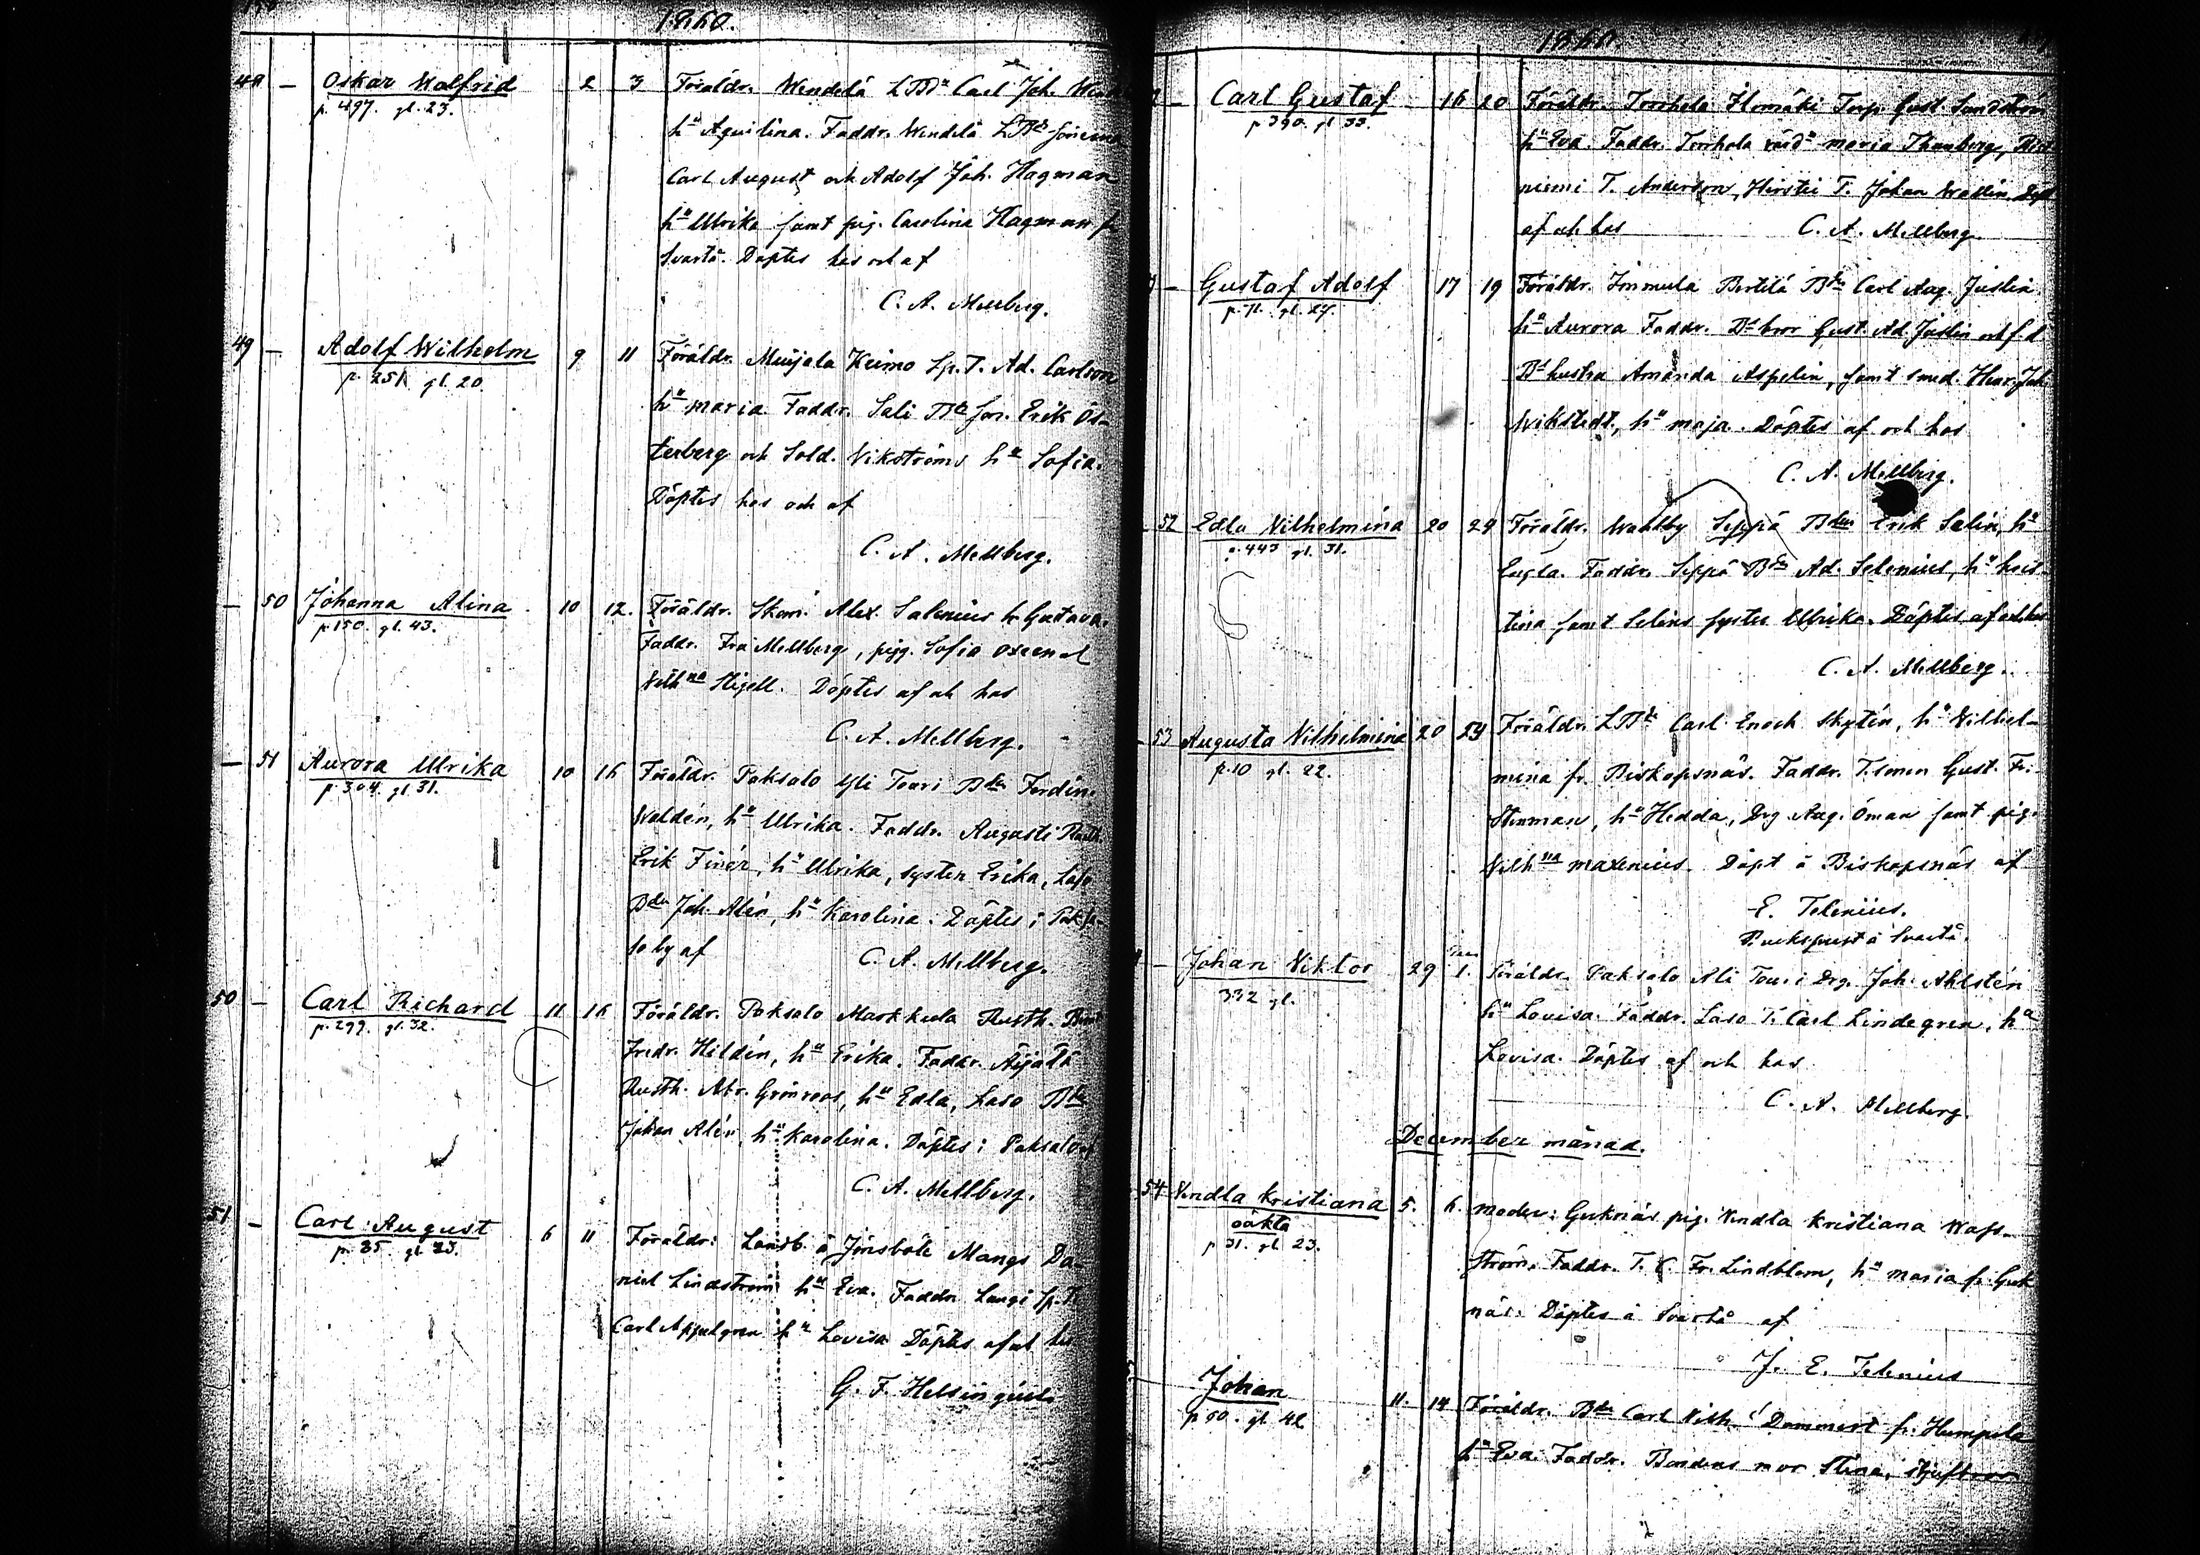 1860.
48 — Oskar Walfrid 2 3 Föräldr. Wendelä LBde Carl Joh.
p. 497. gl. 23.
hu Aquilina. Faddr. Wendelä LBde
Carl August och Adolf Joh. Hagman
hu Ulrika samt pig. Carolina Hagman
Svartå. Döptes hos och af
C. A. Mellberg.
49 — Adolf Wilhelm 9 11 Föräldr. Muijala Keimo Sp. T. Ad. Carlson
p. 251. gl. 20.
hu Maria. Faddr. Sali Bde son. Erik Ös-
terberg och Sold. Vikströms hu Sofia.
Döptes hos och af
C. A. Mellberg.
— 50 Johanna Alina 10 12. Föräldr. Skom. Alex. Salenius h. Gustava.
p. 150. gl. 43.
Faddr. Fru Mellberg, pigg. Sofia
Vilhna Stigell. Döptes af och hos
C. A. Mellberg.
— 51 Aurora Ulrika 10 16 Föräldr. Paksalo Yli Touri Bde Ferdin.
p. 304. gl. 31.
Waldén, hu Ulrika. Faddr. Augusti Rusth.
Erik Finér, hu Ulrika, syster Erika, Laso
Bde Joh. Alén, hu Karolina. Döptes i Paksa-
lo by af
C. A. Mellberg.
50 — Carl Richard 11 16 Föräldr. Paksalo Markkula Rusth.
p. 299. gl. 32.
Fredr. Hildén, hu Erika. Faddr. Äijälä
Rusth. Abr. Grönroos, hu Edla, Laso Bde
Johan Alén, hu Karolina. Döptes i Paksalo af
C. A. Mellberg.
51 — Carl August 6 11 Föräldr: Landb. å Jönsböle Mangs Da-
p. 85 gl. 25.
niel Lindström hu Eva. Faddr. Langi Sp. T.
Carl Appelgren hu Lovisa Döptes af och hos
G. F. Helsingius.
1860.
— Carl Gustaf 16 20 Föräldr. Torrhola Ilomäki Torp. Gust. Sundström
p 390. gl 33.
hu Eva. Faddr. Torrhola värdu Maria Thauberg,
niemi T. Anderson, Hirstii T. Johan Wallin. Döpt
af och hos C. A. Mellberg.
— Gustaf Adolf 17 19 Föräldr. Immula Bertilä Bde Carl Aug. Juslin
p. 71. gl. 27.
hu Aurora Faddr. Bde bror Gust. Ad. Juslin och f.d.
Bde hustra Amanda Aspelin, samt smed. Henr. Joh.
Wikstedt, hu Maja. Döptes af och hos
C. A. Mellberg.
52 Edla Vilhelmina 20 24 Föräldr. Wahlby Seppä Bden Erik Selin, hu
p. 443 gl. 31.
Engla. Faddr. Seppä Bde Ad. Selenius, hu Kris-
tina samt Selins syster Ulrika. Döptes af och hos
C. A. Mellberg.
53 Augusta Vilhelmina 20 24 Föräldr. LBde Carl Enoch Skytén, hu Vilhel-
p. 10 gl. 22.
mina fr. Biskopsnäs. Faddr. Timm. Gust. Fr.
Stenman, hu Hedda, Drg Aug. Öman samt pig.
Vilhna Maxenius. Döpt å Biskopsnäs af
E. Telenius.
Bruksprest å Svartå.
— Johan Viktor 29 Dec. 1. Föräldr. Paksalo Ali Touri Drg. Joh. Ahlstén
332 gl.
hu Lovisa. Faddr. Laso T. Carl Lindegren, hu
Lovisa. Döptes af och hos
C. A. Mellberg.
December månad.
54 Vendla Kristiana 5. 6. Moder: Gurknäs pig. Vendla Kristiana Wass-
oäkta
p 31. gl 23.
ström, Faddr. T. C. Fr. Lindblom, hu Maria fr. Gurk-
näs. Döptes å Svartå af
J. E. Telenius
Johan 11. 14 Föräldr. Bde Carl Vilh. Dammert fr. Humpila
p 50. gl 42
hu Eva. Faddr. Bondens mor Stina,